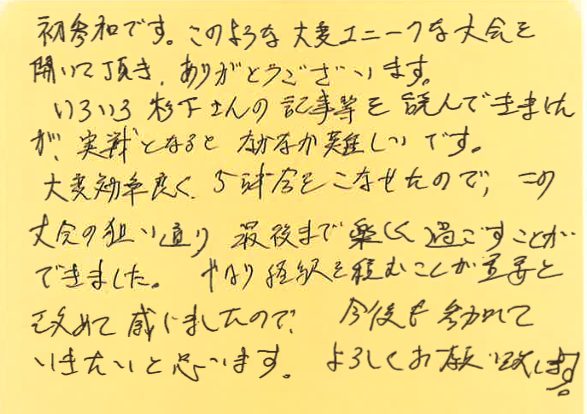 初参加です。このような大変ユニークな大会を
開いて頂き、ありがとうございます。
いろいろ杉下さんの記事等を読んできました
が、実戦となるとなかなか難しいです。
大変効率良く、5試合をこなせたので、この
大会の狙い通り 最後まで楽しく過ごすことが
できました。 やはり経験を積むことが重要と
改めて感じましたので、 今後も参加して
いきたいと思います。 よろしくお願い致します。